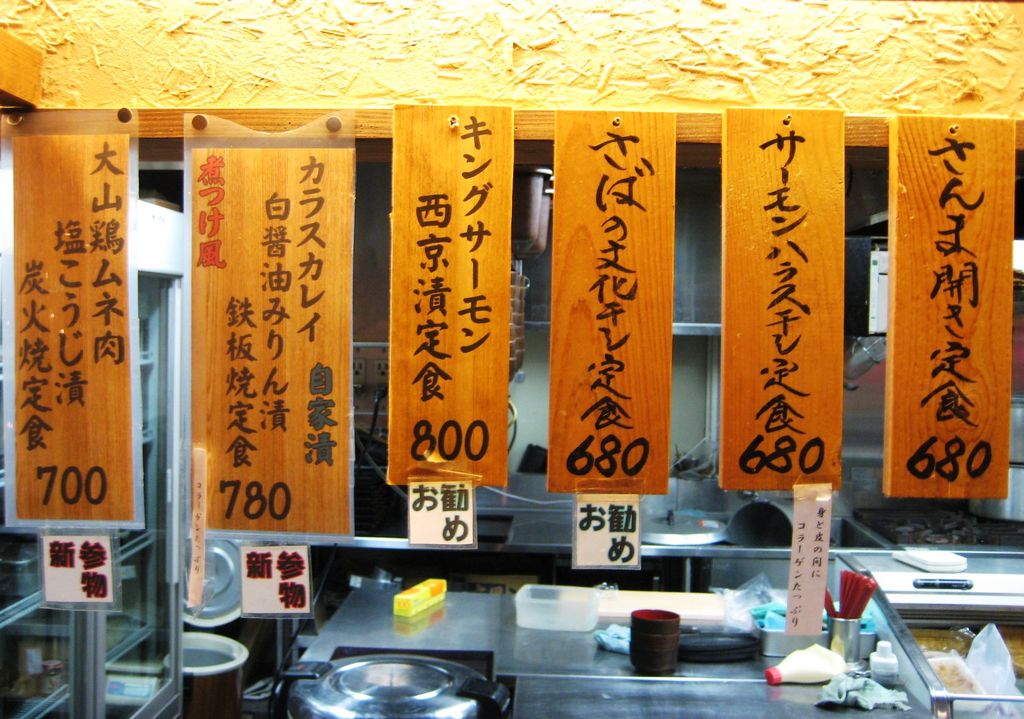 さんま開き定食
680
サーモンハラス干し定食
680
身と皮の間に
コラーゲンたっぷり
さばの文化干し定食
680
お勧め
キングサーモン
西京漬定食
800
お勧め
カラスカレイ
自家漬
白醤油みりん漬
鉄板焼定食
煮つけ風
780
コラーゲンたっぷり
新参物
大山鶏ムネ肉
塩こうじ漬
炭火焼定食
700
新参物